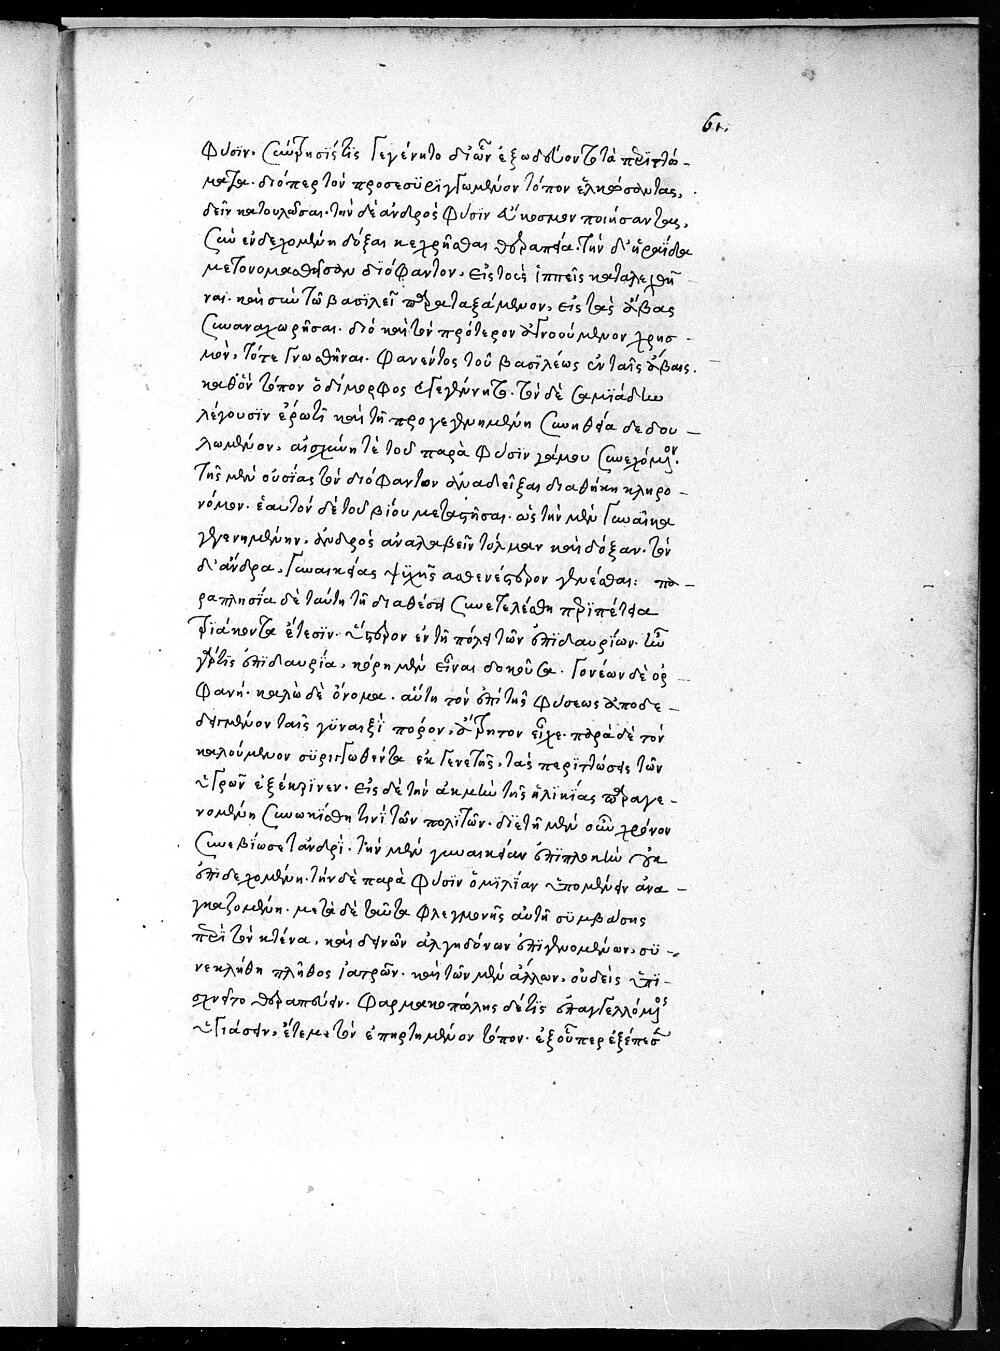 61.
φύσιν. σύντρησίς τις γεγένητο δι' ὧν ἐξωδεύοντο τὰ περιττώ-
ματα. διόπερ τὸν προσεσυριγγωμένον τόπον ἑλκώσαντας,
δεῖν κατουλῶσαι. τὴν δὲ ἀνδρὸς φύσιν εὔκοσμον ποιήσαντας,
συνενδεχομένη δόξαι κεχρῆσθαι θεραπεία. τὴν δ' ἡραΐδα
μετονομασθεῖσαν διόφαντον, εἰς τοὺς ἱππεῖς καταλεχθῆ
ναι. καὶ σὺν τῶ βασιλεῖ παραταξάμενον, εἰς τὰς ἄβας
συναναχωρῆσαι. διὸ καὶ τὸν πρότερον ἀγνοούμενον χρησ-
μὸν, τότε γνωσθῆναι. φανέντος τοῦ βασιλέως ἐν ταῖς ἄβαις.
καθ' ὃν τόπον ὁ δίμορφος ἐγεγέννητο. τὸν δὲ σαμιάδην
λέγουσιν ἔρωτι καὶ τῆ προγεγενημένη συνηθεία δεδου-
λωμένον, αἰσχύνη τὲ τοῦ παρὰ φύσιν γάμου συνεχόμενον.
τῆς μὲν οὐσίας τὸν διόφαντον ἀναδεῖξαι διαθήκη κληρο-
νόμον. ἑαυτὸν δὲ τοῦ βίου μεταστῆσαι. ὡς τὴν μὲν γυναῖκα
γεγενημένην, ἀνδρὸς ἀναλαβεῖν τόλμαν καὶ δόξαν. τὸν
δ' ἄνδρα, γυναικείας ψυχῆς ἀσθενέστερον γενέσθαι: πα-
ραπλησία δὲ ταύτη τῆ διαθέσει συνετελέσθη περιπέτεια
τριάκοντα ἔτεσιν. ὕστερον ἐν τῆ πόλει τῶν ἐπιδαυρίων. ἦν
γάρ τις ἐπιδαυρία, κόρη μὲν εἶναι δοκοῦσα. γονέων δὲ ὀρ
φανή. καλὼ δὲ ὄνομα. αὕτη τὸν ἐπὶ τῆς φύσεως ἀποδε-
δειγμένον ταῖς γυναιξὶ πόρον, ἄτρητον εἶχε. παρὰ δὲ τὸν
καλούμενον συριγγωθέντα ἐκ γενετῆς, τὰς περιττώσεις τῶν
ὑγρῶν ἐξέκρινεν. εἰς δὲ τὴν ἀκμὴν τῆς ἡλικίας παραγε-
νομένη συνωκίσθη τινὶ τῶν πολιτῶν. διετῆ μὲν οὖν χρόνον
συνεβίωσε τἀνδρί. τὴν μὲν γυναικείαν ἐπιπλοκὴν οὐκ
ἐπιδεχομένη. τὴν δὲ παρὰ φύσιν ὁμιλίαν ὑπομένειν ἀνα-
γκαζομένη. μετὰ δὲ ταῦτα φλεγμονῆς αὐτῆ συμβάσης
περὶ τὸν κτένα, καὶ δεινῶν ἀλγηδόνων ἐπιγενομένων, συ-
νεκλήθη πλῆθος ἰατρῶν. καὶ τῶν μὲν ἄλλων, οὐδεὶς ὑπι-
σχνεῖτο θεραπεύειν. φαρμακοπώλης δέ τις ἐπαγγελλόμενος
ὑγιάσειν, ἔτεμε τὸν ἐπηρτημένον τόπον. ἐξ οὗπερ ἐξέπεσε